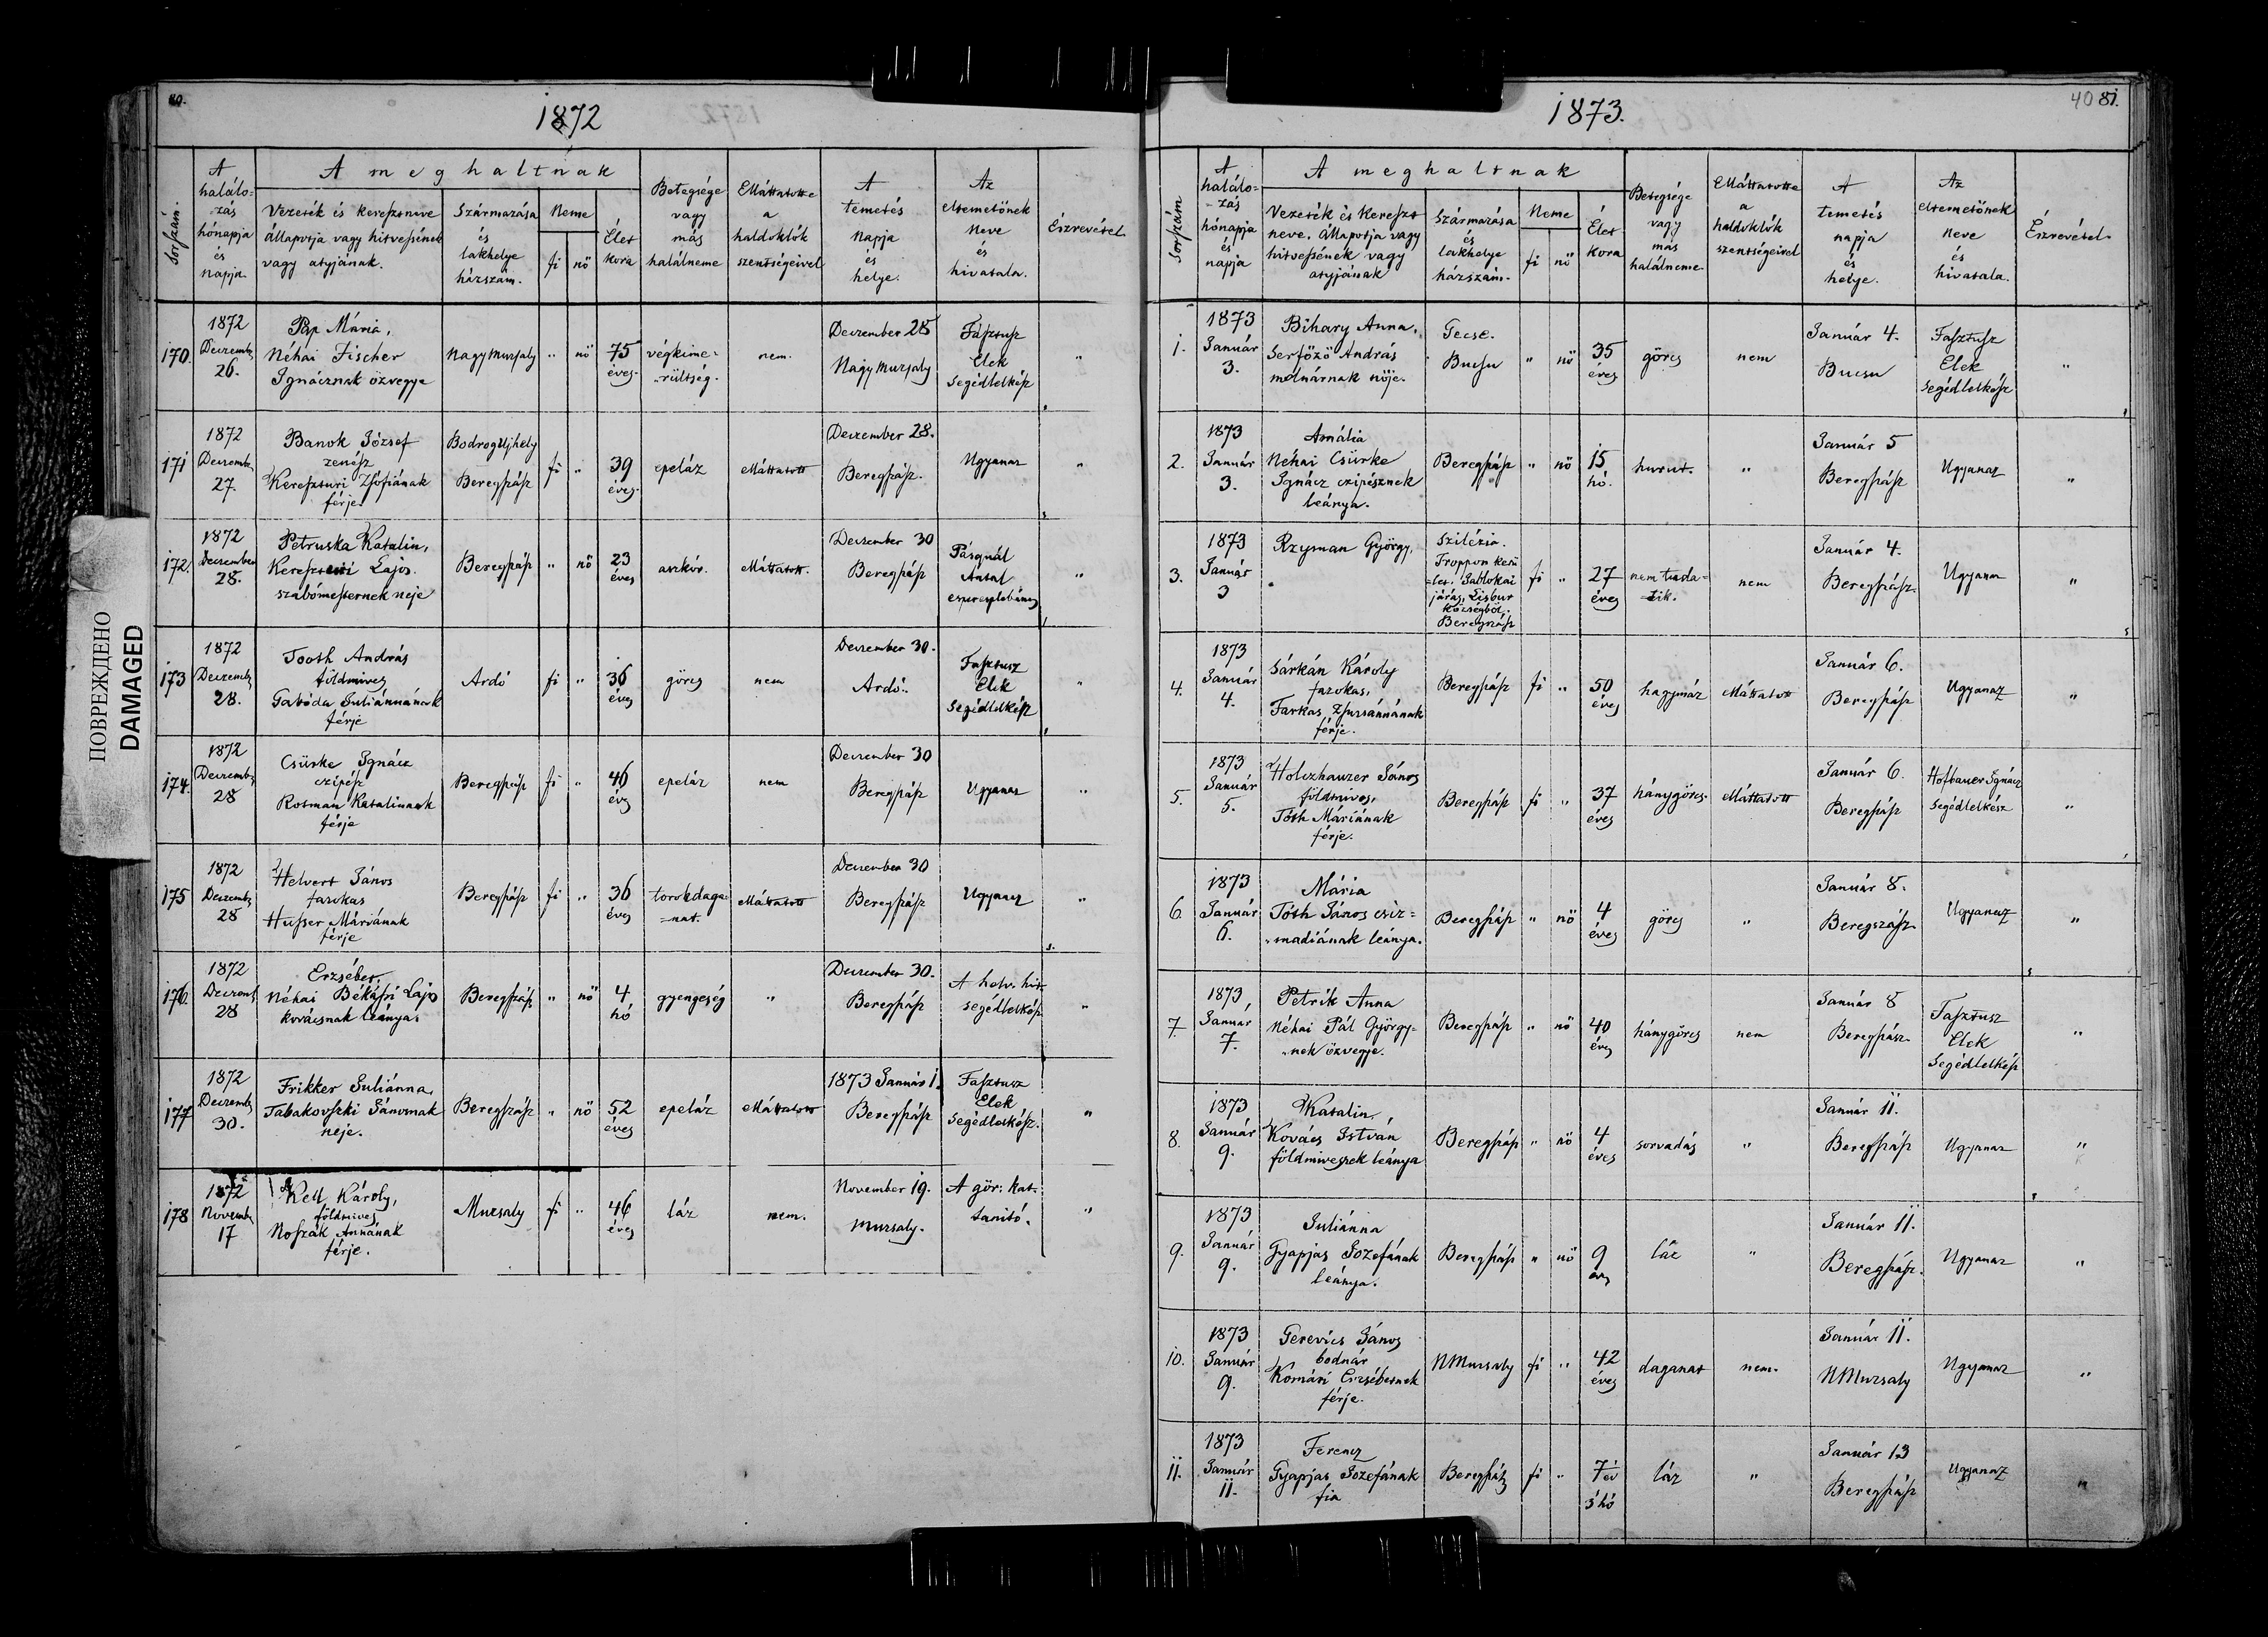 80.
1872
Sorszám.
A halálozás hónapja és napja.
A meghaltnak
Vezeték és keresztneve állapotja vagy hitvesének vagy atyjának.
Származása és lakhelye házszám.
Neme
fi
nö
Élet kora
Betegsége vagy más halálneme
Ellátatott-e a haldoklók szentségeivel
A temetés napja és helye.
Az eltemetőnek neve és hivatala.
Észrevétel
170.
1872
Decemb.
26.
Pap Mária,
Néhai Fischer
Ignácznak özvegye
Nagymuzsaly
"
nö
75
éves.
végkime=
rültség.
nem.
December 28
Nagymuzsaly
Fásztusz
Elek
segédlelkész
"
171
1872
Decemb.
27.
Banok József
zenész
Kereszturi Zsófiának
férje.
BodrogUjhely
Beregszász
fi
"
39
éves.
epeláz
ellátatott
December 28.
Beregszász.
Ugyanaz
"
172.
1872
December
28.
Petruska Katalin,
Kereszturi Lajos.
szabómesternek neje
Beregszász
"
nö
23
éves
aszkór.
ellátatott.
December 30
Beregszász
Pásquál
Antal
"
173
1872
Decemb.
28.
Tooth András
földmives
Juliánnának
férje
Ardó
fi
"
36
éves
görcs
nem
December 30.
Ardó.
Fasztusz
Elek
segédlelkész
"
174.
1872
Decemb.
28
Csürke Ignácz
czipész
Rotman Katalinnak
férje
Beregszász
fi
"
46
év
epeláz
nem
December 30
Beregszász
Ugyanaz
"
175
1872
Decemb.
28
Helvert János
fazekas
Huszer Máriának
férje
Beregszász
fi
"
36
éves
torokdaga=
=nat.
ellátatott
December 30
Beregszász
Ugyanaz
"
176.
1872
Decemb.
28
Erzsébet,
Néhai Békássi Lajos
kovácsnak leánya.
Beregszász
"
nö
4
hó
gyengeség
"
December 30.
Beregszász
A helv. hit.
segédlelkész
"
177
1872
Decemb.
30.
Frikker Juliánna,
Tabakovszki Jánosnak
neje.
Beregszász
"
nö
52
éves
epeláz
ellátatott
1873 Január 1.
Beregszász
Fasztusz
Elek
segédlelkész.
"
178
1872
Novemb.
17
Kell Károly,
földmives
Noszák Annának
férje.
Muzsaly
fi
"
46
éves
láz
nem.
November 19.
Muzsaly.
A gör: kat.
tanitó.
"
1873.
40 81.
Sorszám
A halálo-
-zás
hónapja
és
napja
A meghaltnak
Vezeték és Kereszt
neve, állapotja vagy
hitvesének vagy
atyjának
Származása
és
lakhelye
házszám.
Neme
fi
nö
Élet
kora
Betegsége
vagy
más
halálneme
Ellátatott-e
a
haldoklók
szentségeivel
A
temetés
napja
és
helye.
Az
eltemetőnek
neve
és
hivatala.
Észrevétel.
1.
1873
Január
3.
Bihary Anna,
Serfözö András
molnárnak nöje.
Gecse.
Bucsu
"
nö
35
éves
görcs
nem
Január 4.
Bucsu
Fasztusz
Elek
segédlelkész
"
2.
1873
Január
3.
Amália
Néhai Csürke
Ignácz czipésznek
leánya.
Beregszász
"
nö
15
hó.
hurut.
"
Január 5
Beregszász
Ugyanaz
"
3.
1873
Január
3
Rzyman György,
Szilézia.
Troppon kerü
let. Jablokai
járás, Lisbut
községböl.
Beregszász
fi
"
27
éves
nem tuda=
=tik.
nem
Január 4.
Beregszász.
Ugyanaz
"
4.
1873
Január
4.
Sárkán Károly
fazekas,
Farkas Zsuzsánnának
férje.
Beregszász
fi
"
50
éves
hagymáz
ellátatott
Január 6.
Beregszász
Ugyanaz
"
5.
1873
Január
5.
Holczhauzer János
földmives,
Tóth Máriának
férje.
Beregszász
fi
"
37
éves
hánygörcs.
ellátatott
Január 6.
Beregszász
Hofbauer Ignácz
segédlelkész
"
6.
1873
Január
6.
Mária
Tóth János csiz=
madiának leánya.
Beregszász
"
nö
4
éves
görcs
"
Január 8.
Beregszász
Ugyanaz
"
7.
1873
Január
7.
Petrik Anna
Néhai Pál György=
nek özvegye.
Beregszász
"
nö
40
éves
hánygörcs
nem
Január 8
Beregszász.
Fasztusz
Elek
segédlelkész
"
8.
1873
Január
9.
Katalin,
Kovács István
földmivesnek leánya
Beregszász
"
nö
4
éves
sorvadás
"
Január 11.
Beregszász
Ugyanaz
"
9.
1873
Január
9.
Juliánna
Gyapjas Jozefának
leánya.
Beregszász
"
nö
9
éves
láz
"
Január 11.
Beregszász.
Ugyanaz
"
10.
1873
Január
9.
Gerevics János
bodnár
Komári Erzsébetnek
férje.
NMuzsaly
fi
"
42
éves
daganat
nem.
Január 11.
NMuzsaly
Ugyanaz
"
11.
1873
Január
11.
Ferencz
Gyapjas Jozefának
fia
Beregszász
fi
"
7 év
3 hó
láz
"
Január 13
Beregszász
Ugyanaz
"
ПОВРЕЖДЕНО
DAMAGED